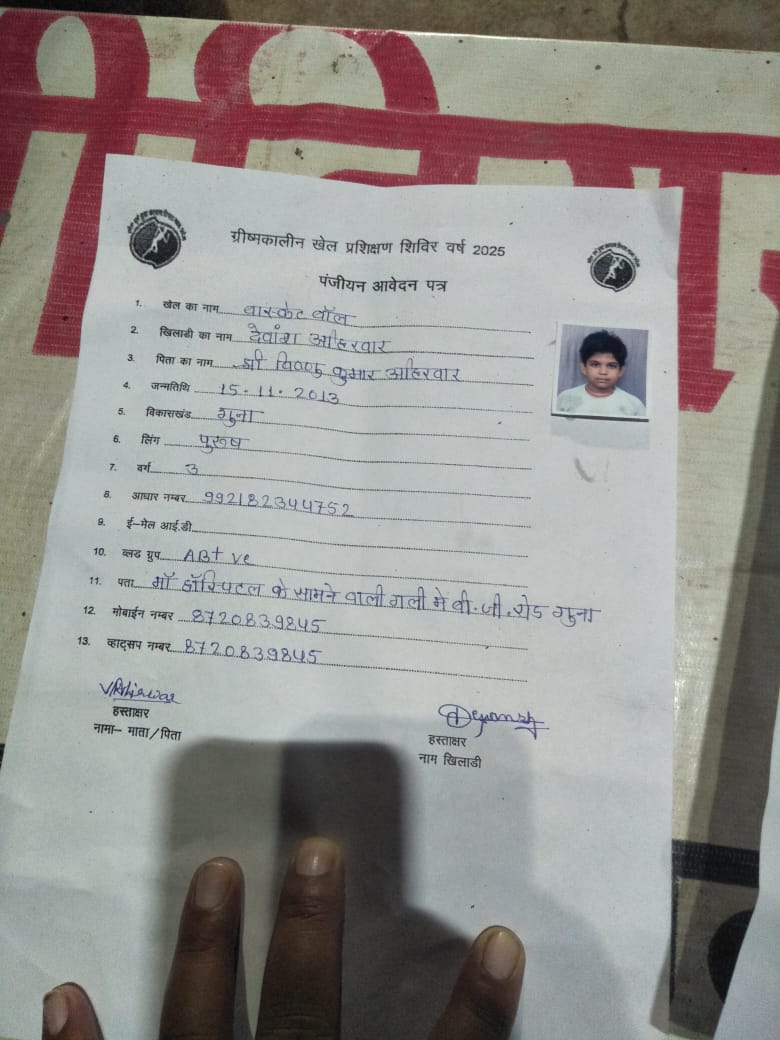 ग्रीष्मकालीन खेल प्रशिक्षण शिविर वर्ष 2025
पंजीयन आवेदन पत्र
1. खेल का नाम वास्केट वॉल
2. खिलाडी का नाम देवांश अहिरवार
3. पिता का नाम श्री विष्णु कुमार अहिरवार
4. जन्मतिथि 15.11.2013
5. विकासखंड गुना
6. लिंग पुरुष
7. वर्ग 3
8. आधार नम्बर 992182344752
9. ई-मेल आई.डी
10. ब्लड ग्रुप AB+ ve
11. पता माँ हॉस्पिटल के सामने वाली गली मे वी.जी.रोड गुना
12. मोबाईन नम्बर 8720839845
13. व्हाट्सप नम्बर 8720839845
VAhirwar
हस्ताक्षर
नामा- माता/पिता
Devansh
हस्ताक्षर
नाम खिलाडी